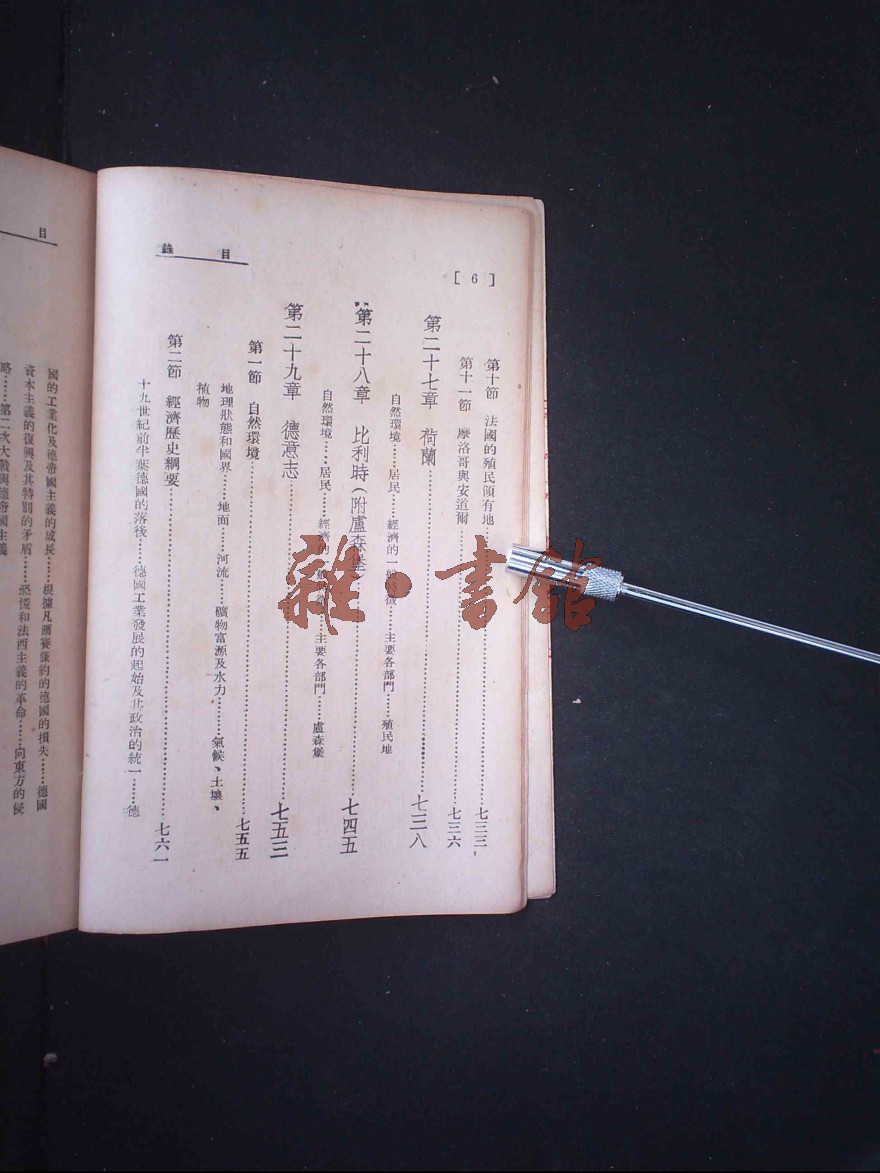 [ 6 ]
目錄
第十節 法國的殖民領有地……七三三
第十一節 摩洛哥與安道爾……七三六
第二十七章 荷蘭……七三八
自然環境……居民……經濟的一般特徵……主要各部門……殖民地
第二十八章 比利時(附盧森堡)……七四五
自然環境……居民……經濟的一般特徵……主要各部門……盧森堡
第二十九章 德意志……七五三
第一節 自然環境……七五五
地理狀態和國界……地面……河流……礦物富源及水力……氣候、土壤、
植物
第二節 經濟歷史綱要……七六一
十九世紀前半葉德國的落後……德國工業發展的起始及其政治的統一……德
目
國的工業化及德帝國主義的成長……根據凡爾賽條約的德國的損失……德國
資本主義的復興及其特別的矛盾……恐慌和法西主義的革命……向東方的侵
略……第二次大戰與德帝國主義
雜·書館